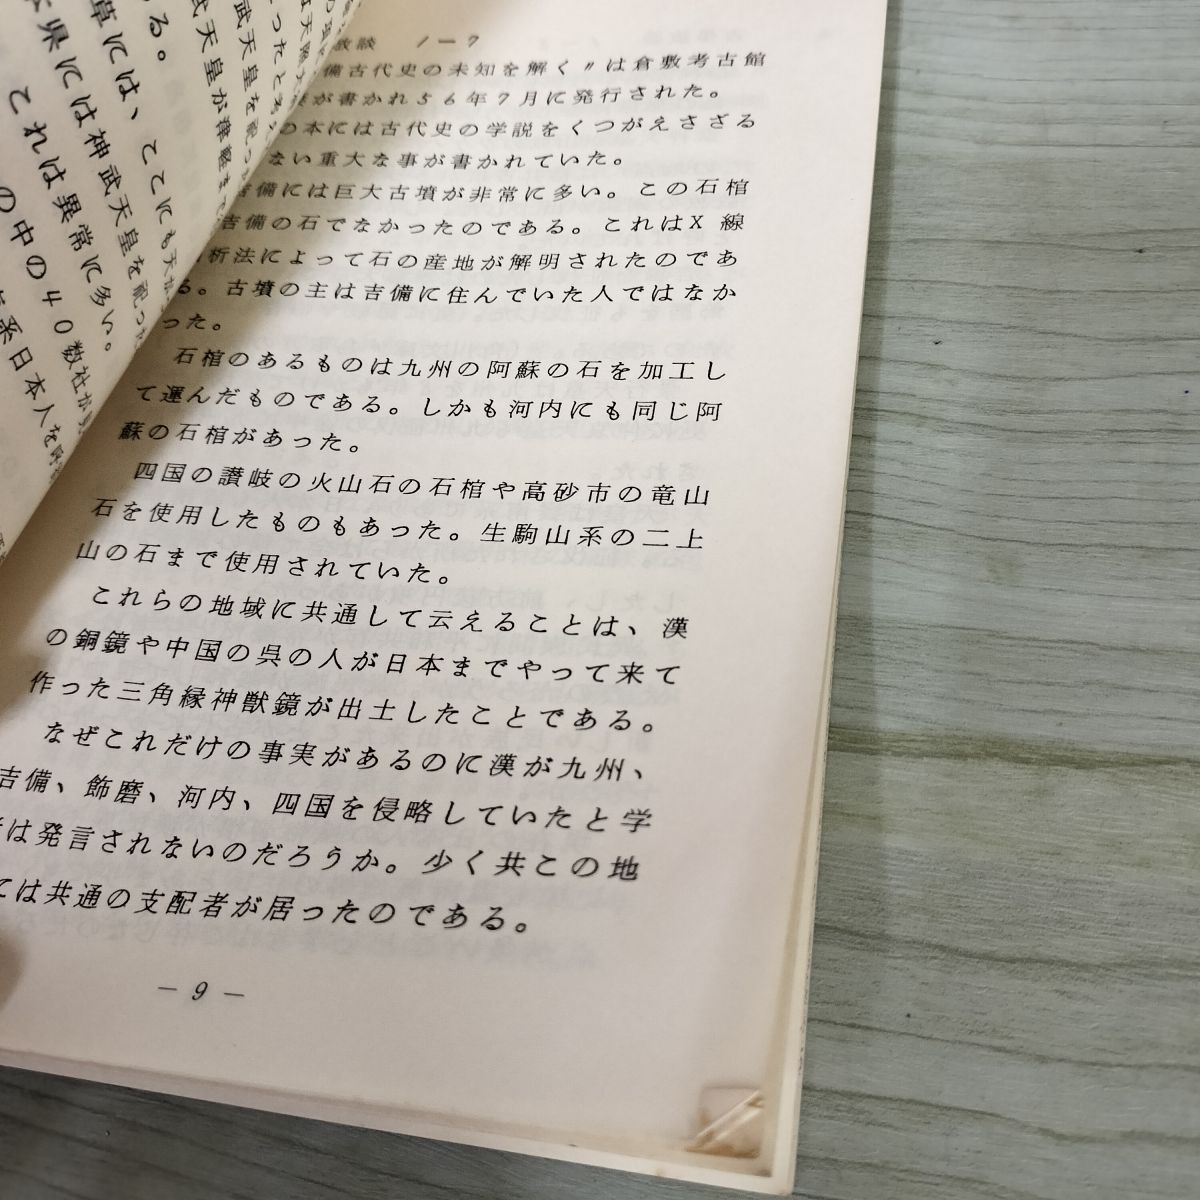 散談 1－7
備古代史の未知を解く〃は倉敷考古館
が書かれ56年7月に発行された。
の本には古代史の学説をくつがえさざる
ない重大な事が書かれていた。
吉備には巨大古墳が非常に多い。この石棺
吉備の石でなかったのである。これはX線
析法によって石の産地が解明されたのであ
る。古墳の主は吉備に住んでいた人ではなか
った。
石棺のあるものは九州の阿蘇の石を加工し
て運んだものである。しかも河内にも同じ阿
蘇の石棺があった。
四国の讃岐の火山石の石棺や高砂市の竜山
石を使用したものもあった。生駒山系の二上
山の石まで使用されていた。
これらの地域に共通して云えることは、漢
の銅鏡や中国の呉の人が日本までやって来て
作った三角縁神獣鏡が出土したことである。
なぜこれだけの事実があるのに漢が九州、
吉備、飾磨、河内、四国を侵略していたと学
は発言されないのだろうか。少く共この地
ては共通の支配者が居ったのである。
－9－
武天皇が
武天皇を祀っ
ったと考
草には、ここにも天
県には神武天皇を祀った
これは異常に多い。
の中の40数社が
系日本人を
ある。